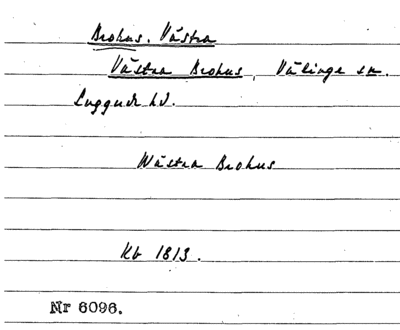 Brohus. Västra
Västra Brohus, Välinge sn.
Luggude hd.
Wästra Brohus
Kb 1813.
Nr 6096.